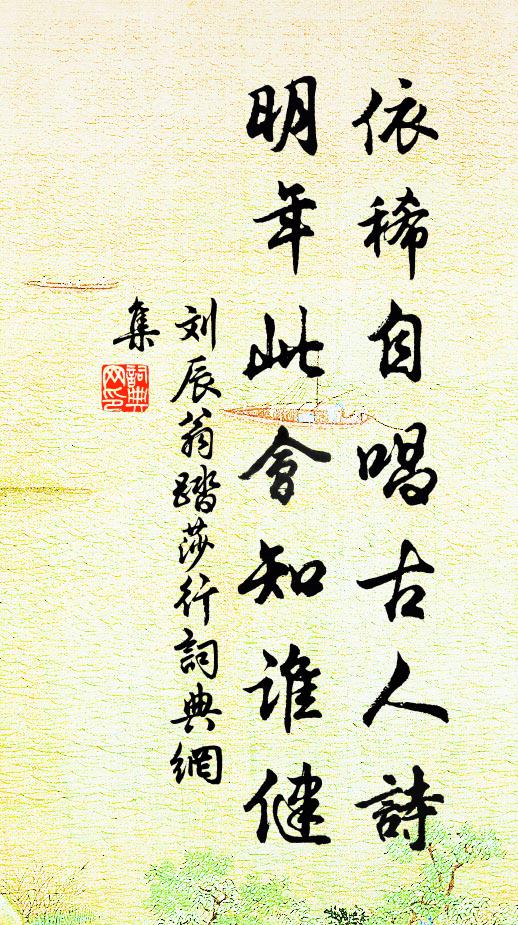 依稀自唱古人詩
明年此會知誰健
刘辰翁踏莎行詞典網
集
詞典
网印